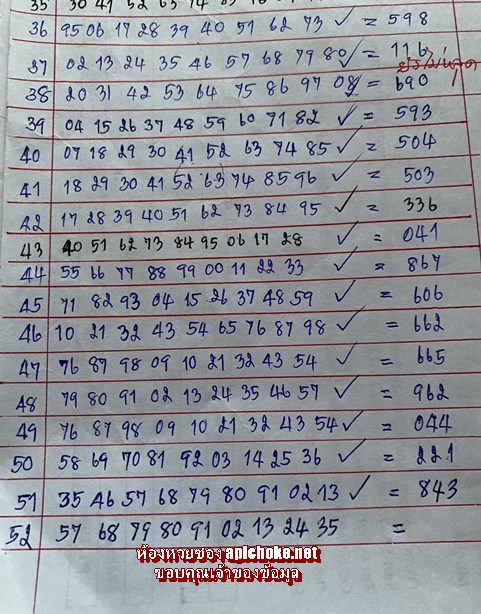 36 95 06 17 28 39 40 51 62 73 ✓ = 598
37 02 13 24 35 46 57 68 79 80 ✓ = 116
38 20 31 42 53 64 75 86 97 08 ✓ = 690
39 04 15 26 37 48 59 60 71 82 ✓ = 593
40 07 18 29 30 41 52 63 74 85 ✓ = 504
41 18 29 30 41 52 63 74 85 96 ✓ = 503
42 17 28 39 40 51 62 73 84 95 ✓ = 336
43 40 51 62 73 84 95 06 17 28 ✓ = 041
44 55 66 77 88 99 00 11 22 33 ✓ = 867
45 71 82 93 04 15 26 37 48 59 ✓ = 606
46 10 21 32 43 54 65 76 87 98 ✓ = 662
47 76 87 98 09 10 21 32 43 54 ✓ = 665
48 79 80 91 02 13 24 35 46 57 ✓ = 962
49 76 87 98 09 10 21 32 43 54 ✓ = 044
50 58 69 70 81 92 03 14 25 36 ✓ = 221
51 35 46 57 68 79 80 91 02 13 ✓ = 843
52 57 68 79 80 91 02 13 24 35 =
ห้องหวยซอง apichoke.net
ขอบคุณเจ้าของข้อมูล